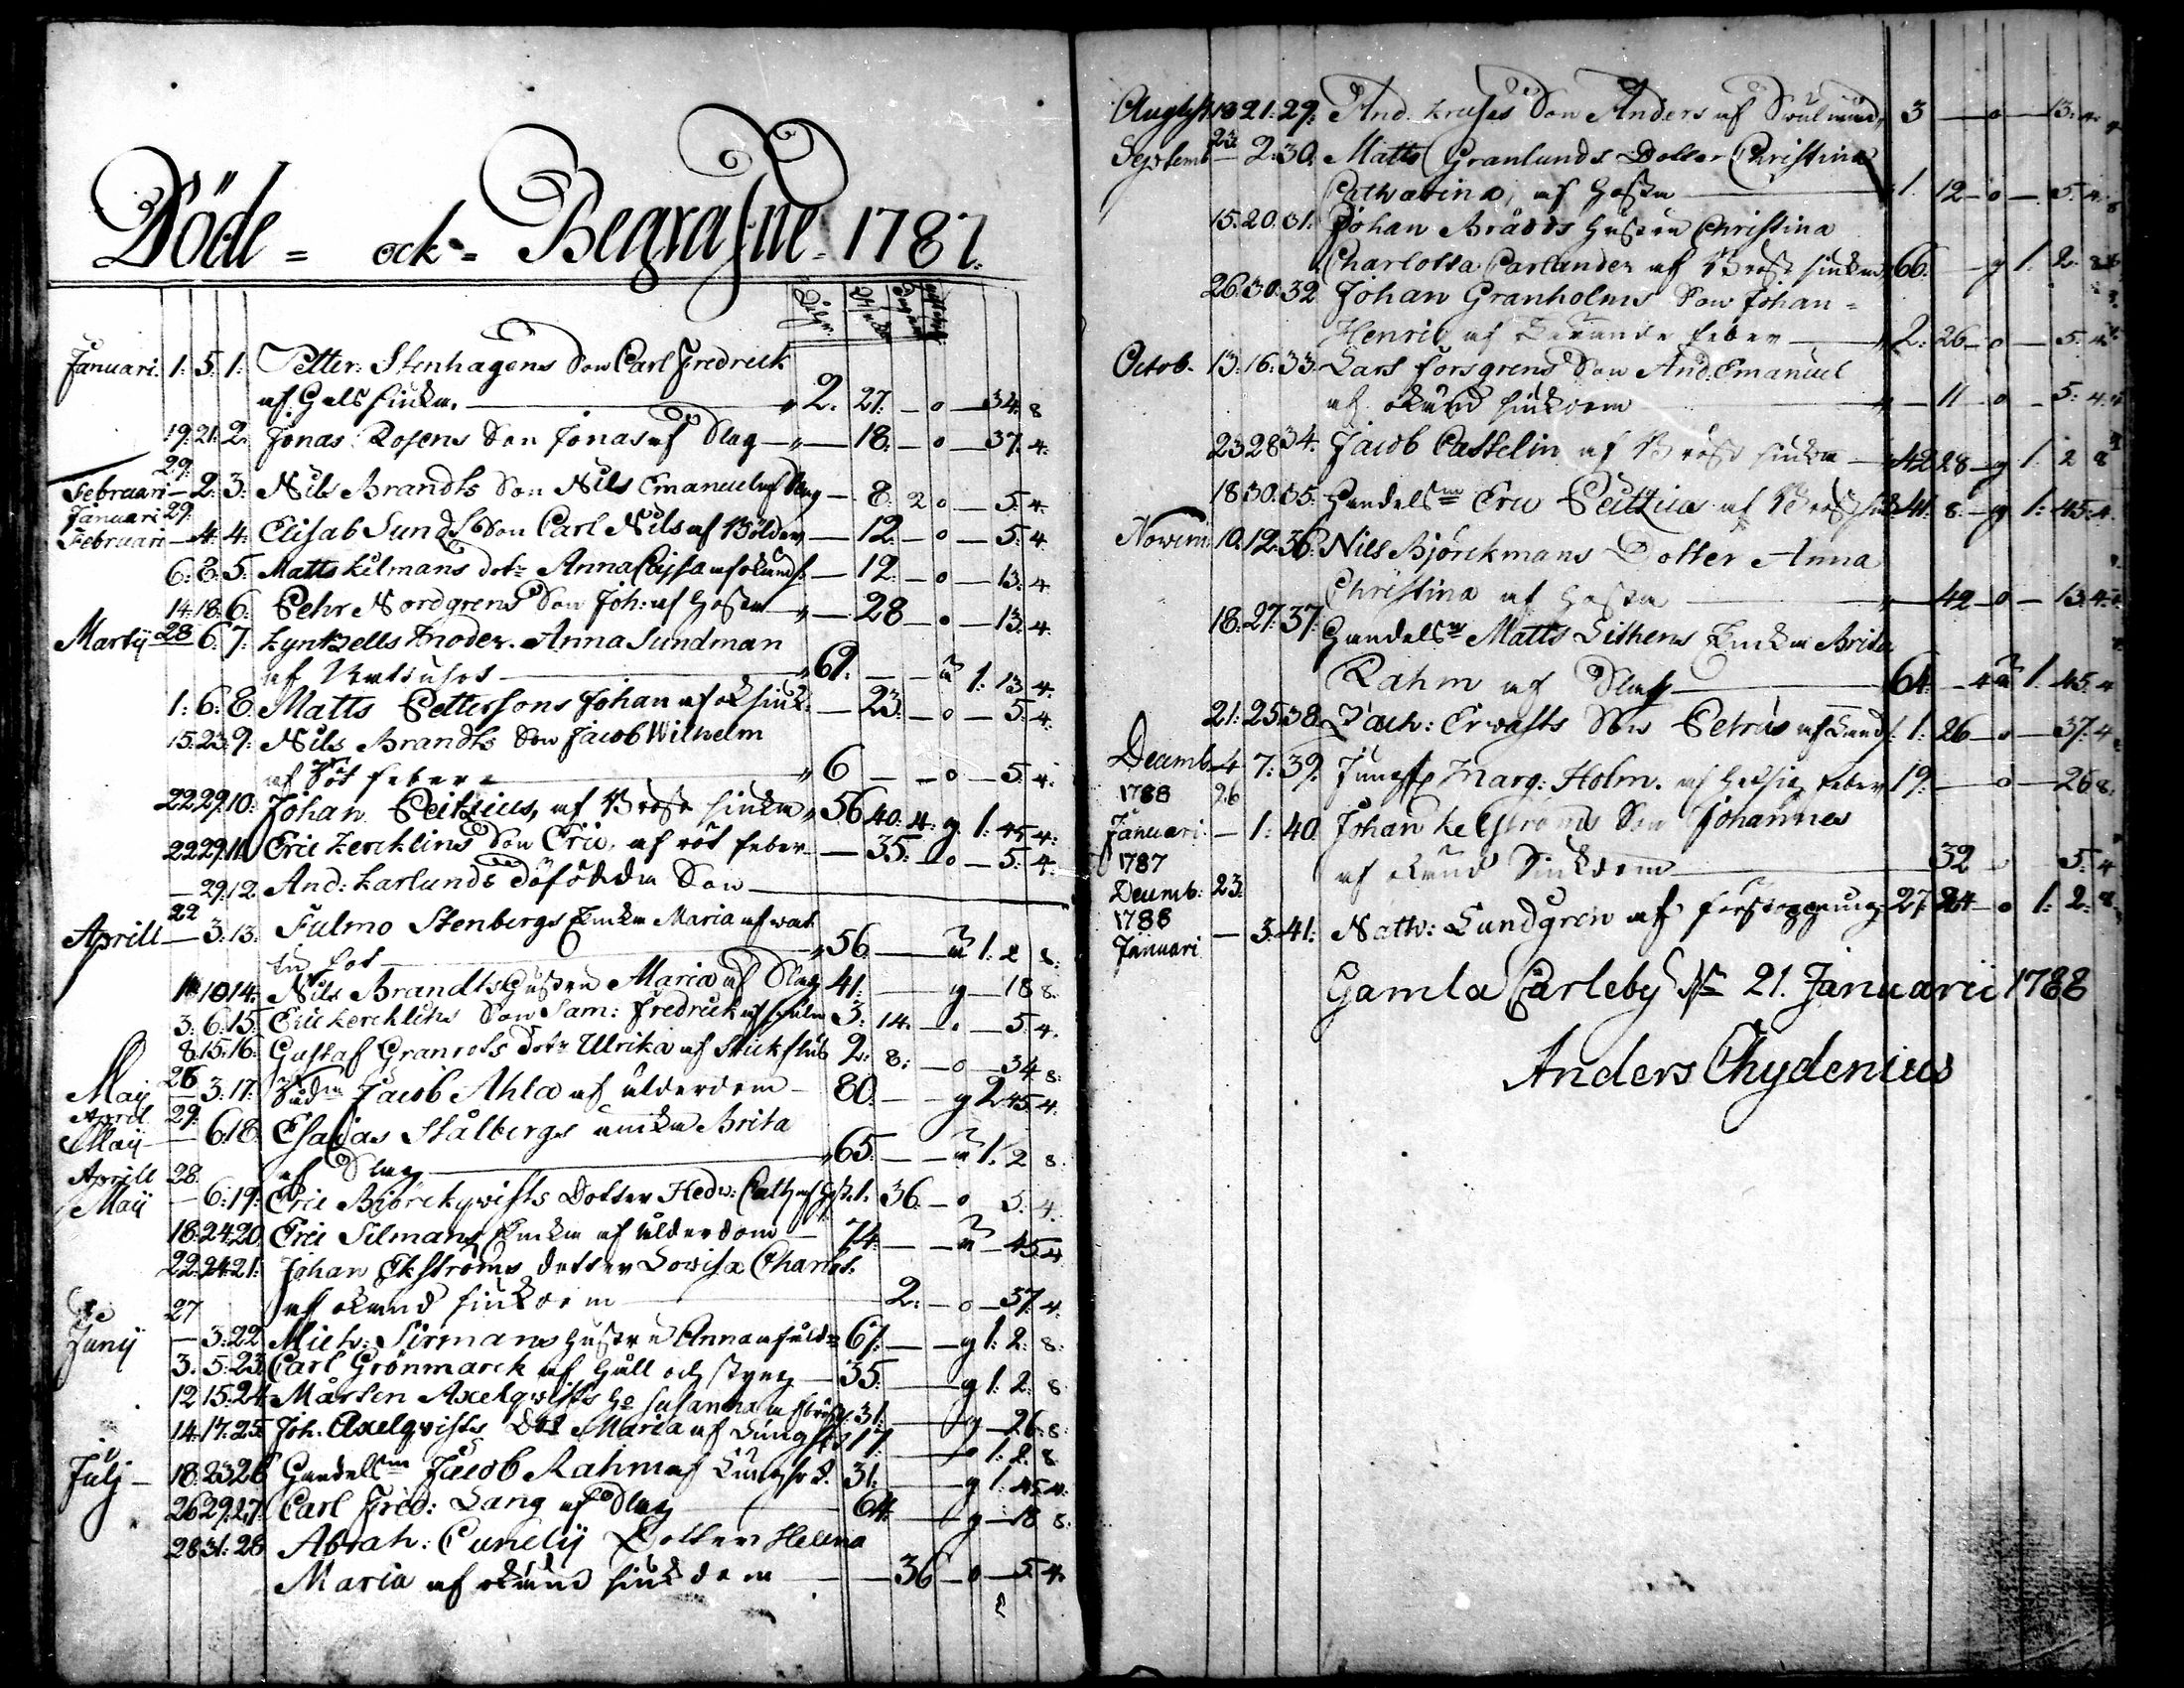 Döde = ock = Begrafne 1787.
Januari. 1: 5: 1: Petter Stenhagens Son Carl Fredrick
af Halssiuka. 2. 27. — o — 34: 8
19: 21: 2. Jonas Rosens Son Jonas af Slag — 18. — o — 37: 4.
29.
Februari — 2: 3: Nils Brandts Son Nils Emanuel af Slag — 8: 2 o — 5: 4.
Januari 29:
Februari — 4: 4: Elisab Sunds Son Carl Nils af Bölder — 12. — o — 5: 4
6: 8: 5: Matts Kilmans dotr Anna Cajsa af okänd — 12. — o — 13: 4
14: 18: 6: Pehr Nordgrens Son Joh: af Hosta — 28 — o — 13: 4.
Martij 28 6: 7: Lyntzells moder Anna Sundman
af 69: — — ä 1: 13 4.
1: 6: 8: Matts Pettersons Johan af ok siuk. — 23: — o — 5: 4.
15: 23: 9: Nils Brandts Son Jacob Wilhelm
af Röt feber 6 — — o — 5: 4.
22 29: 10: Johan Peitzius, af Bröst siuka 56 40: 4: g. 1: 45 4:
22 29: 11. Eric Lerchlins Son Eric, af röt feber — 35: — o — 5: 4.
— 29: 12. And: Karlunds döfödda Son
22
Aprill — 3: 13. Fulmo Stenbergs Enka Maria af wat
tu sot 56 — — ä 1: 2 8:
10 14: Nils Brandts Hustru Maria af Slag 41: — g — 18 8.
3: 6: 15: Eric Lerchlins Son Sam: Fredrick af 3: 14. — o — 5 4.
8: 15: 16: Gustaf Granrots dotr Ulrika af Stickfluss 2: 8: — o — 34 8:
26
Maij — 3: 17: Jacob Ahla af ålderdom — 80: — — g 2 45 4.
April 29:
Maij — 6: 18. Esaias Stålbergs änka Brita
af Slag 65 — — ä 1: 2 8:
Aprill 28.
Maij — 6: 19: Eric Björckqwists Dotter Hedw: Cath af Hst. 1. 36. — o 5 4.
18: 24: 20 Eric Silmans Enka af ålderdom — 74: — — ä — 45 4
22: 24: 21: Johan Ekströms dotter Lowisa Charlot.
af okänd siukdom 2: — o — 37 4.
27
Junij — 3: 22 Mich: Sirmans Hustru Anna af åldr 67: — — g 1: 2: 8:
3. 5: 23: Carl Grönmarck af Håll och styng — 35: — g 1: 2 8
12 15: 24: Mårten Axelqwists Ho Susanna af bröst. 31. — g — 26: 8:
14: 17: 25: Joh. Axelqvists Dot Maria af Lungsot 17 — o 1: 2: 8.
Julj — 18: 23 26 Handelsm Jacob Rahm af Lungsot. 31: — g 1: 45 4.
26 29: 27: Carl Fred: Lang af Slag 64 — g — 18 8:
28 31: 28 Abrah: Cunelij Dotter Helena
Maria af okänd siukdom — 36 — o — 5. 4.
Augusti 18 21: 29: And. Kruses Son Anders af 3 — o — 13: 4.
23
Septemb — 2: 30. Matts Granlunds Dotter Christina
Catharina, af Hosta 1. 12 — o — 5. 4.
15: 20: 31: Johan Brådds Hustru Christina
Charlotta Carlander af Bröst siuka, 66: — g 1: 2: 8
26: 30: 32 Johan Granholms Son Johan =
Henric af feber 2: 26 — o — 5. 4
Octob. 13: 16: 33: Lars Forsgrens Son And. Emanuel
af okänd siukdom — 11 — o — 5: 4
23 28 34. Jacob Casselin af Bröst siuka — 42 28 — g 1: 2 8
18 30: 35: Handelsm Eric Peitzius af Bröst siuk 41: 8: — g 1: 45: 4.
Novem: 10: 12: 36: Nils Björckmans Dotter Anna
Christina af Hosta — 42 — o — 13: 4
18: 27: 37: Handelsm Matts Lithens Enka Brita
Rahm af Slag 64: — 4 ä 1: 45. 4
21: 25: 38: Zach: Erwasts Son Petrus af 1: 26 — o — 37: 4
Decemb — 4 7: 39: Jungfr Marg: Holm. af Hetsig feber 19: — o — 26 8:
1788 26
Januari. — 1: 40 Johan Kelströms Son Johannes
1787 af okänd Siukdom 32 o 5: 4
Decemb: 23:
1788
Januari — 3: 41: Nath: Lundgren af förstoppning 27: 24 — o 1: 2: 8.
Gamla Carleby d. 21. Januarii 1788
Anders Chydenius